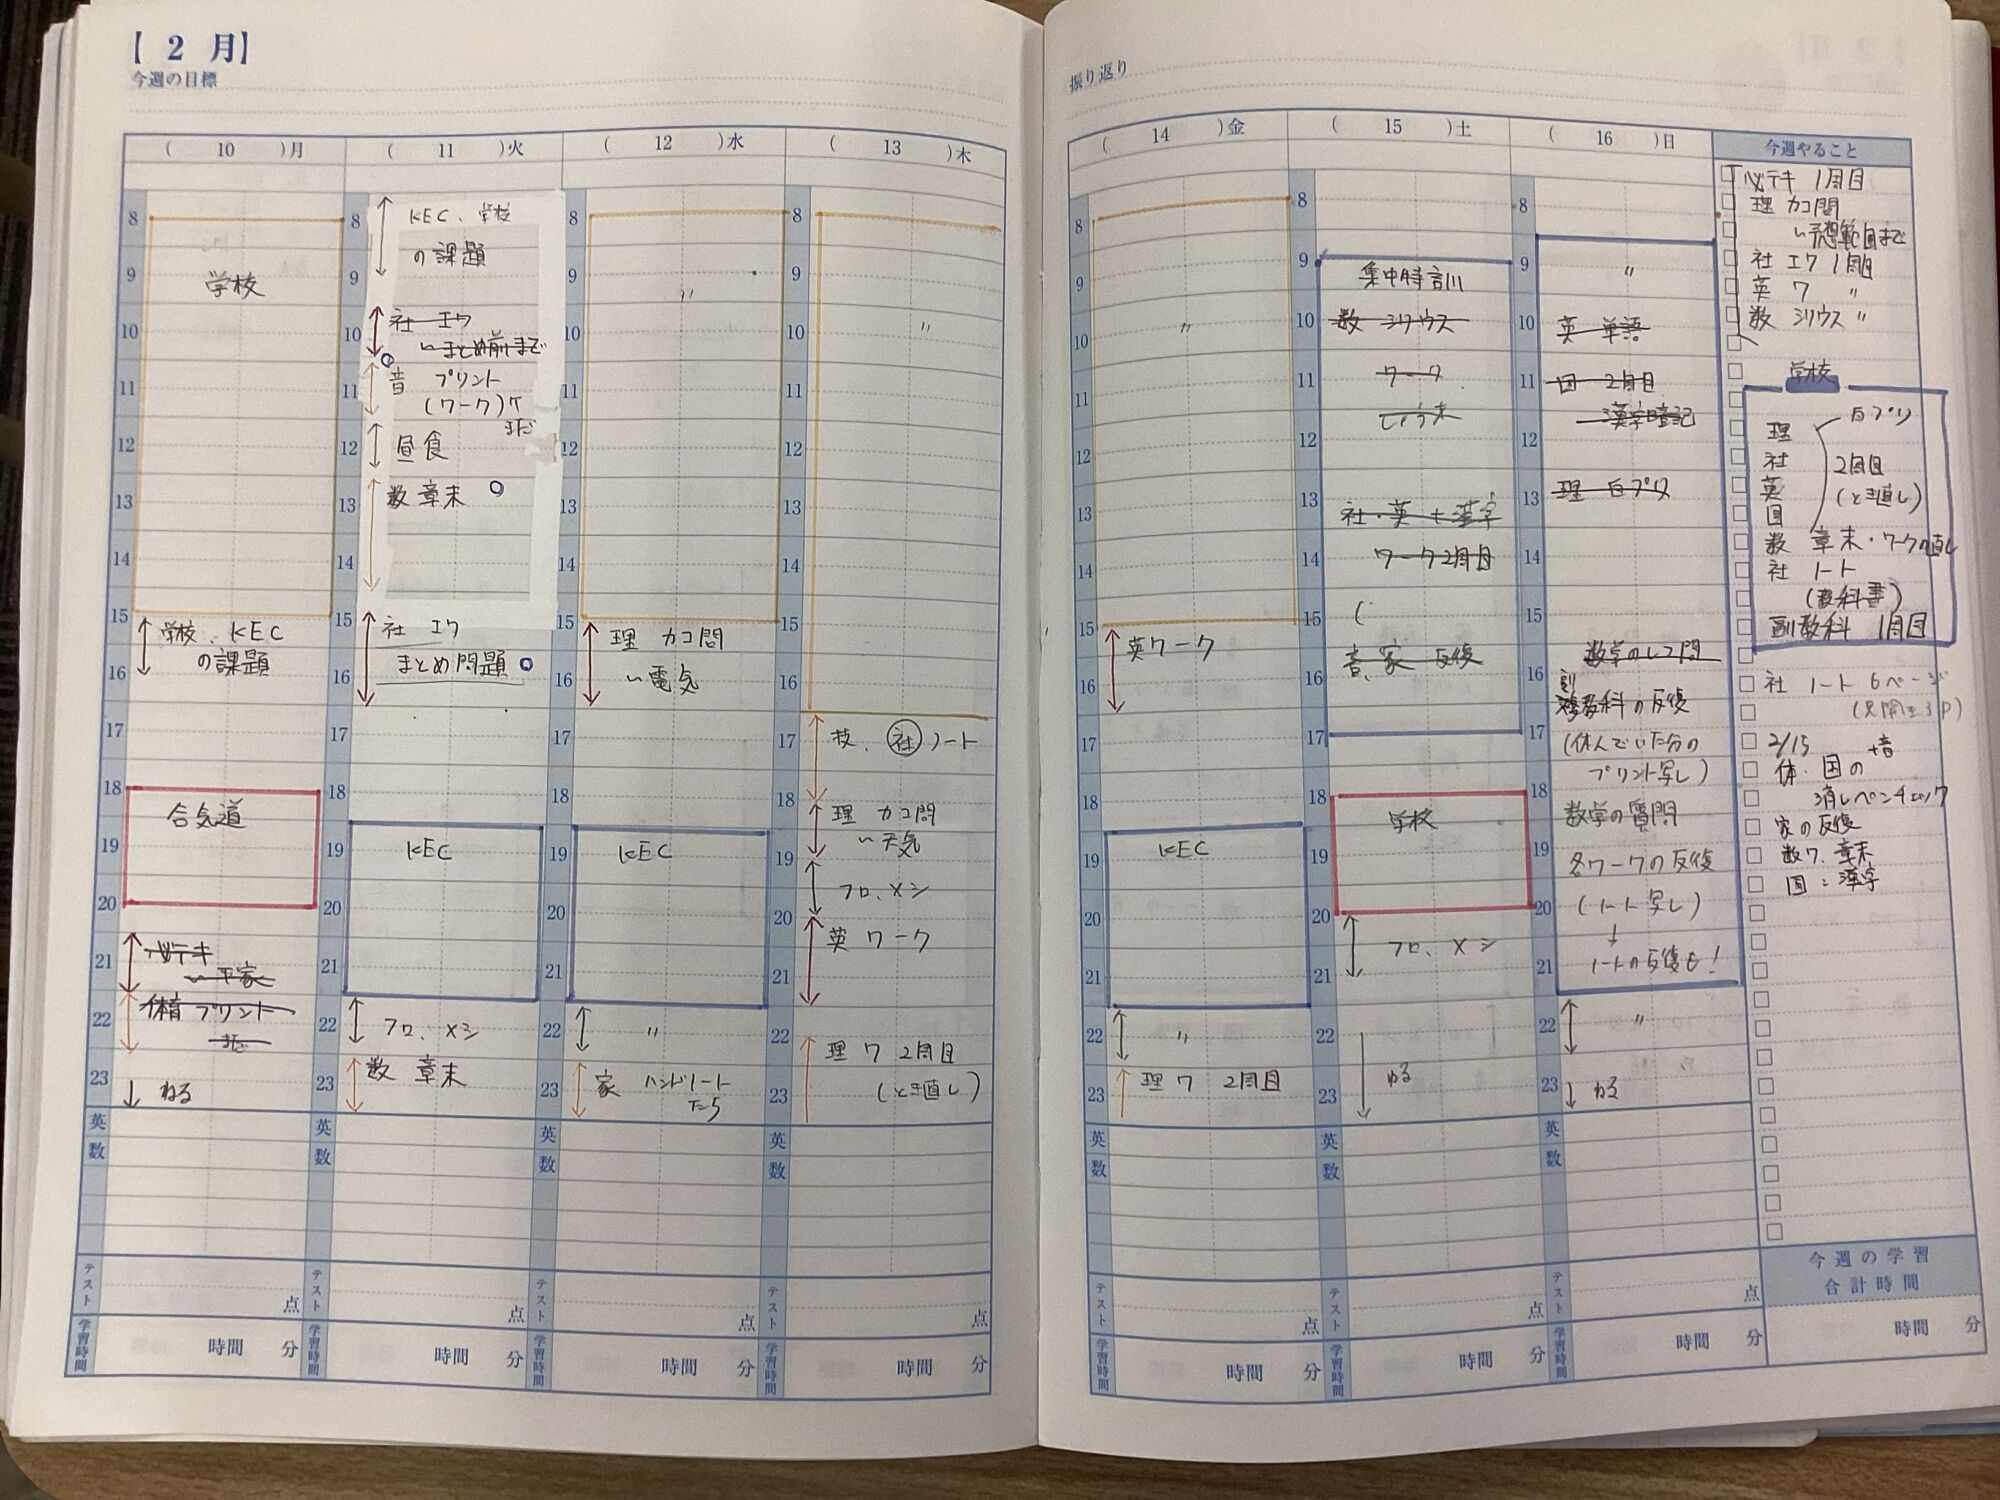 【 2 月】
今週の目標
( 10 )月
8
9
10
11
12
13
14
15
16
17
18
19
20
21
22
23
学校
学校、KEC
の課題
合気道
必テキ
〜平家
体育 プリント
まで
ねる
英
数
テスト
点
学習時間
時間 分
( 11 )火
8
9
10
11
12
13
14
15
16
17
18
19
20
21
22
23
KEC、学校
の課題
社 エワ
〜まとめ前まで
音 プリント
(ワーク)ケ
まだ
昼食
数 章末
社 エワ
まとめ問題
KEC
フロ、メシ
数 章末
英
数
テスト
点
学習時間
時間 分
( 12 )水
8
9
10
11
12
13
14
15
16
17
18
19
20
21
22
23
〃
理 カコ問
〜電気
KEC
〃
家 ハンドノート
たち
英
数
テスト
点
学習時間
時間 分
( 13 )木
8
9
10
11
12
13
14
15
16
17
18
19
20
21
22
23
〃
技、社ノート
理 カコ問
〜天気
フロ、メシ
英 ワーク
理 ワ 2周目
(とき直し)
英
数
テスト
点
学習時間
時間 分
振り返り
( 14 )金
8
9
10
11
12
13
14
15
16
17
18
19
20
21
22
23
〃
英ワーク
KEC
〃
理 ワ 2周目
英
数
テスト
点
学習時間
時間 分
( 15 )土
8
9
10
11
12
13
14
15
16
17
18
19
20
21
22
23
集中特訓
数 シリウス
ワーク
しょう末
社・英 + 漢字
ワーク2周目
(
音、家 反復
学校
フロ、メシ
ねる
英
数
テスト
点
学習時間
時間 分
( 16 )日
8
9
10
11
12
13
14
15
16
17
18
19
20
21
22
23
〃
英 単語
国 2周目
漢字暗記
理 白プリ
数学のレコ問
副教科の反復
(休んでいた分の
プリント写し)
数学の質問
各ワークの反復
(ノート写し)
↓
ノートの反復も!
〃
ねる
英
数
テスト
点
学習時間
時間 分
今週やること
必テキ 1周目
理 カコ問
〜予想範囲まで
社 エワ 1周目
英 ワ 〃
数 シリウス 〃
学校
理
社
英
国
白プリ
2周目
(とき直し)
数 章末・ワークの直し
社 ノート
(教科書)
副教科 1周目
社 ノート 6ページ
(見開き3P)
2/15 +音
体、国の
消しペンチェック
家の反復
数ワ、章末
国:漢字
今週の学習
合計時間
時間 分